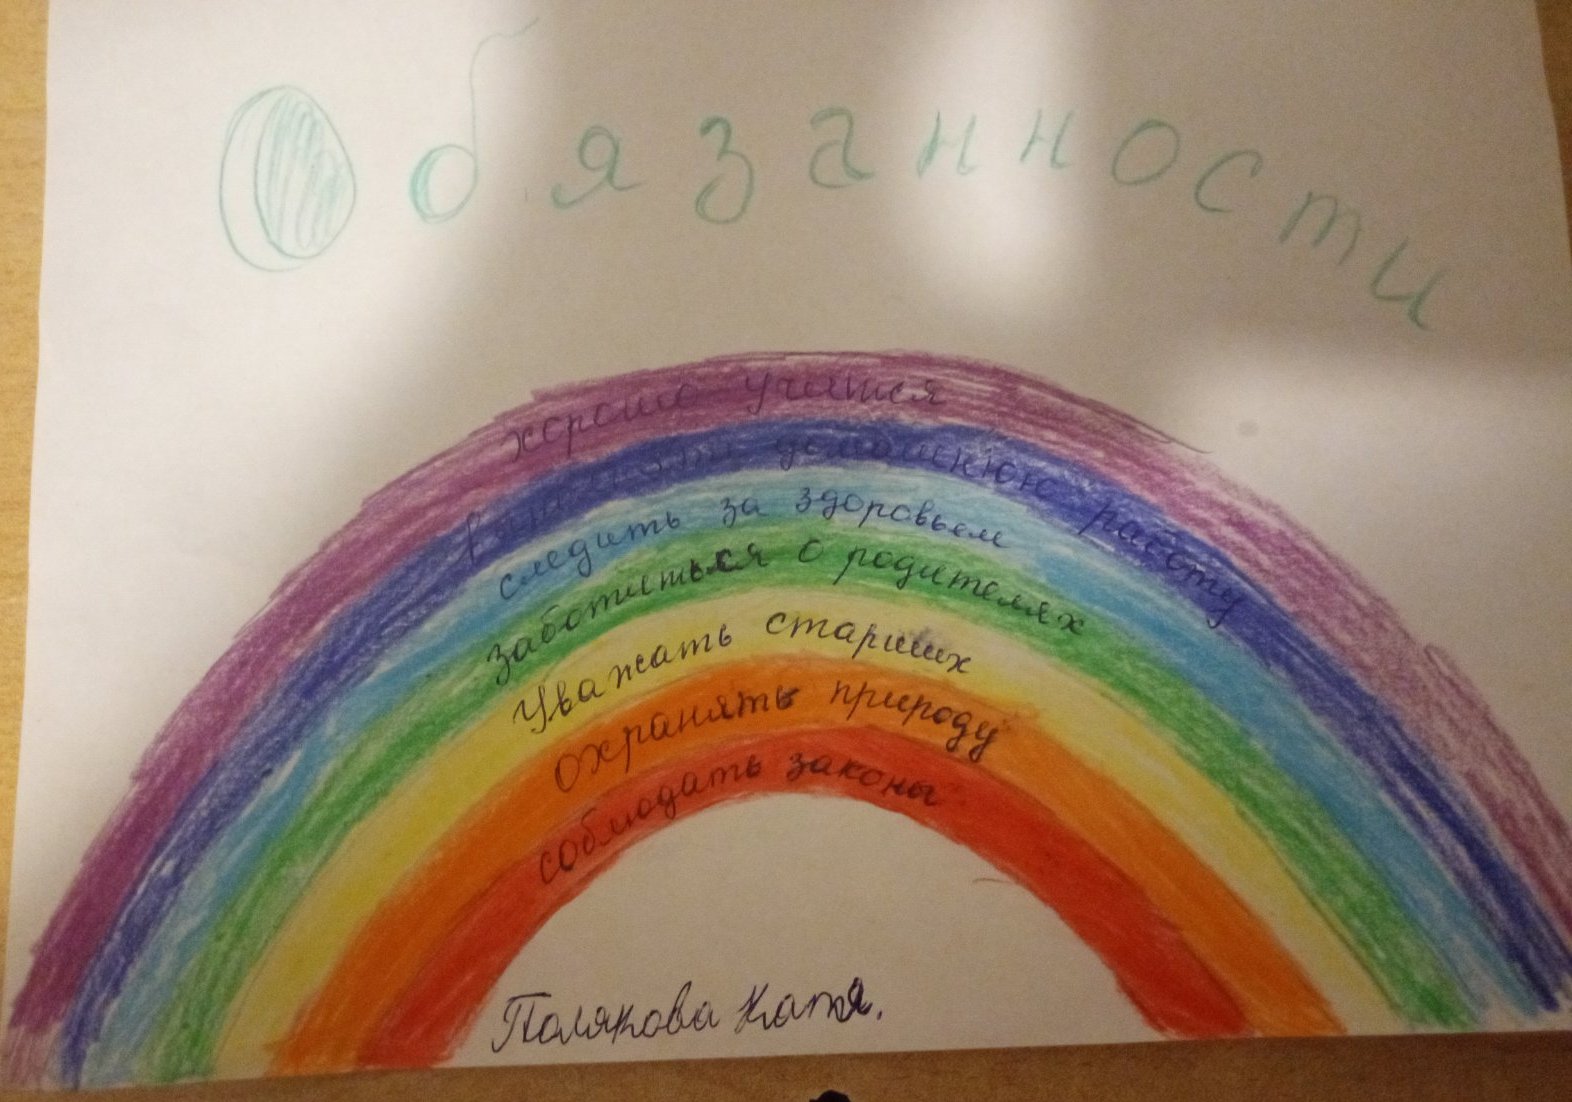 Обязанности
хорошо учится
выполнять домашнюю работу
следить за здоровьем
заботиться о родителях
Уважать старших
охранять природу
соблюдать законы
Полякова Катя.